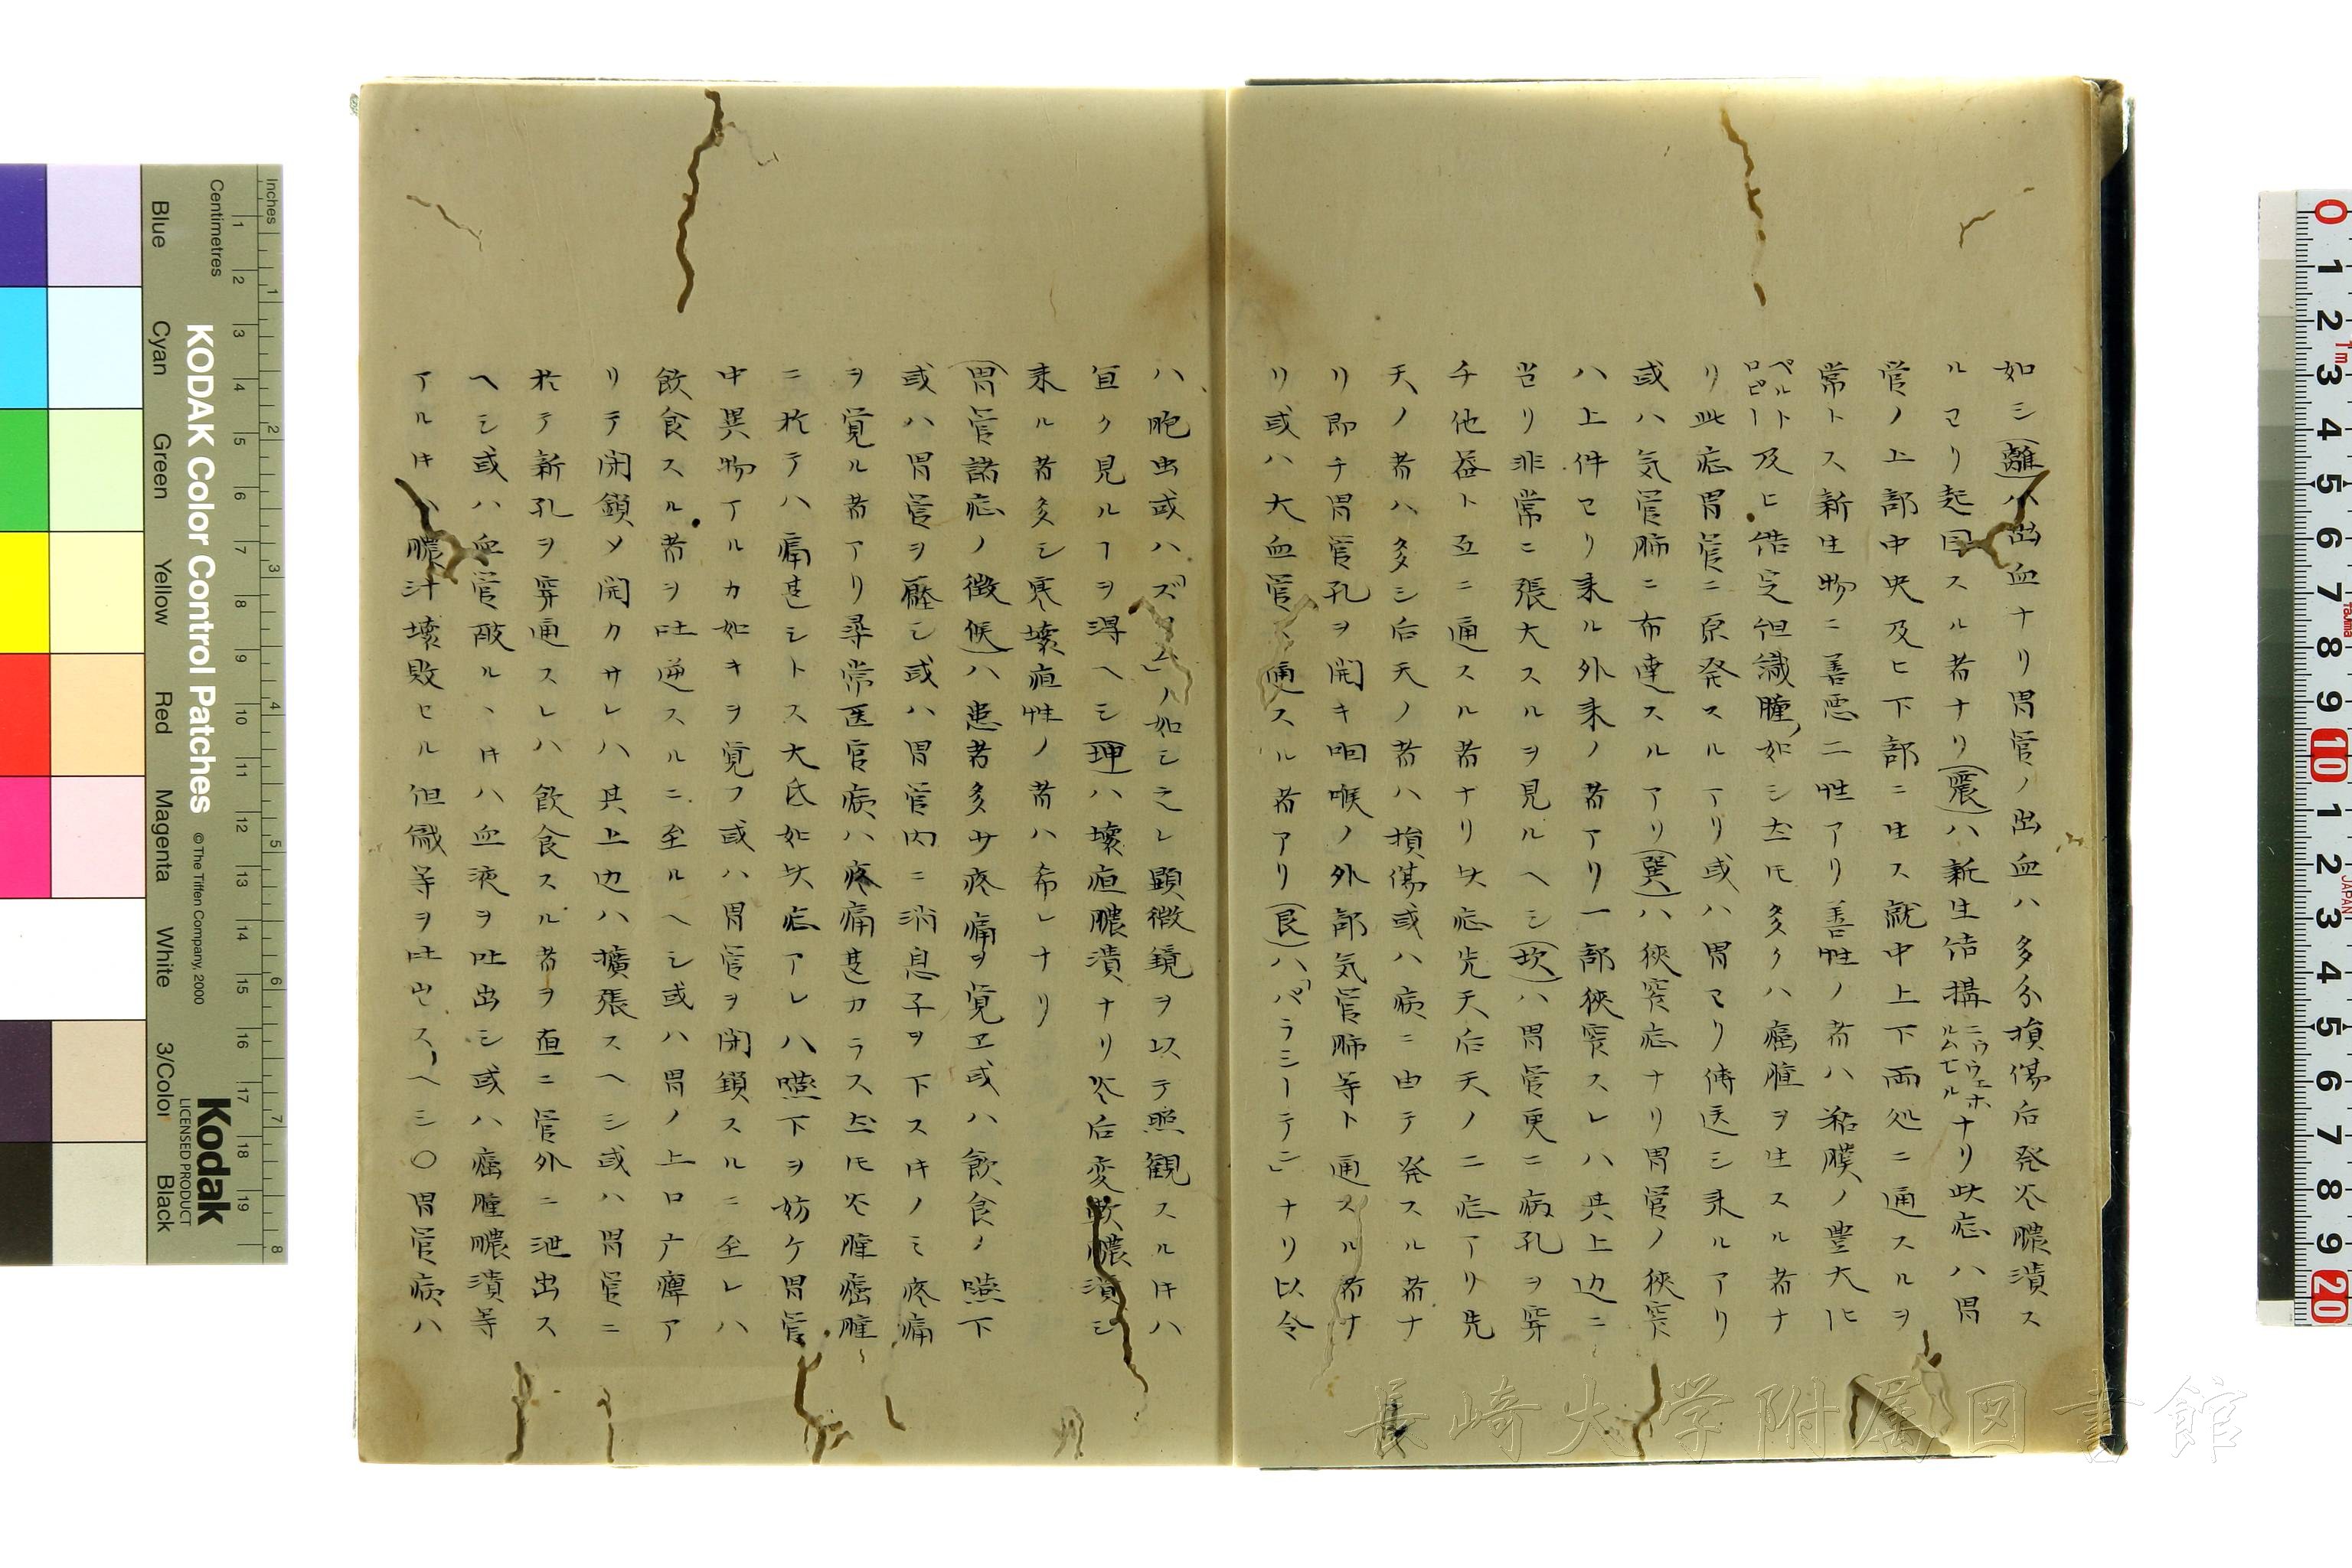 如シ(離)ハ出血ナリ胃管ノ出血ハ多分損傷后発炎膿潰ス
ルヨリ起因スル者ナリ(震)ハ新生結搆ニウウェホルムセルナリ此症ハ胃
管ノ上部中央及ヒ下部ニ生ス就中上下両処ニ通スルヲ
常トス新生物ニ善悪二性アリ善性ノ者ハ粘膜ノ豊大ヒ
ペルトロピー及ヒ結定組織腫ノ如シ圶𪜈多クハ癌腫ヲ生スル者ナ
リ此症胃管ニ原発スルアリ或ハ胃ヨリ傳送シ来ルアリ
或ハ気管肺ニ布達スルアリ(巽)ハ狹窄症ナリ胃管ノ狹窄
ハ上件ヨリ来ル外来ノ者アリ一部狹窄スレハ其上辺ニ
当リ非常ニ張大スルヲ見ルヘシ(坎)ハ胃管更ニ病孔ヲ穿
チ他益ト互ニ通スル者ナリ此症先天后天ノ二症アリ先
天ノ者ハ多シ后天ノ者ハ損傷或ハ病ニ由テ発スル者ナ
リ即チ胃管孔ヲ開キ咽喉ノ外部気管肺等ト通スル者ナ
リ或ハ大血管ト通スル者アリ(艮)ハ「パラシーテン」ナリ以令
ハ胞虫或ハ「ズ ム」ノ如シ之レ顕微鏡ヲ以テ照観スル𪜈ハ
宜ク見ルヿヲ得ヘシ(坤)ハ壊疽膿潰ナリ炎后変軟膿潰シ
来ル者多シ寒壊疽性ノ者ハ希レナリ
(胃管諸症ノ徴候)ハ患者多ク疼痛ヲ覚ヱ或ハ飲食ノ嚥下
或ハ胃管ヲ壓シ或ハ胃管内ニ消息子ヲ下ス𪜈ノミ疼痛
ヲ覚ル者アリ尋常医官病ハ疼痛甚カラス圶𪜈炎腫癌腫
ニ於テハ痛甚シトス大氏如此症アレハ嚥下ヲ妨ケ胃管
中異物アルカ如キヲ覚フ或ハ胃管ヲ閉鎖スルニ至レハ
飲食スル者ヲ吐逆スルニ至ルヘシ或ハ胃ノ上口ニ痺ア
リテ閉鎖メ開クサレハ其上辺ハ擴張スヘシ或ハ胃管ニ
於テ新孔ヲ穿通スレハ飲食スル者ヲ直ニ管外ニ泄出ス
ヘシ或ハ血管破ルヽ𪜈ハ血液ヲ吐出シ或ハ癌腫膿潰等
アル𪜈ハ膿汁壊敗セル組織等ヲ吐出スヘシ〇胃管病ハ
KODAK Color Control Patches
© The Tiffen Company, 2000
Kodak
LICENSED PRODUCT
Inches
Centimetres
Blue
Cyan
Green
Yellow
Red
Magenta
White
3/Color
Black
長崎大学附属図書館